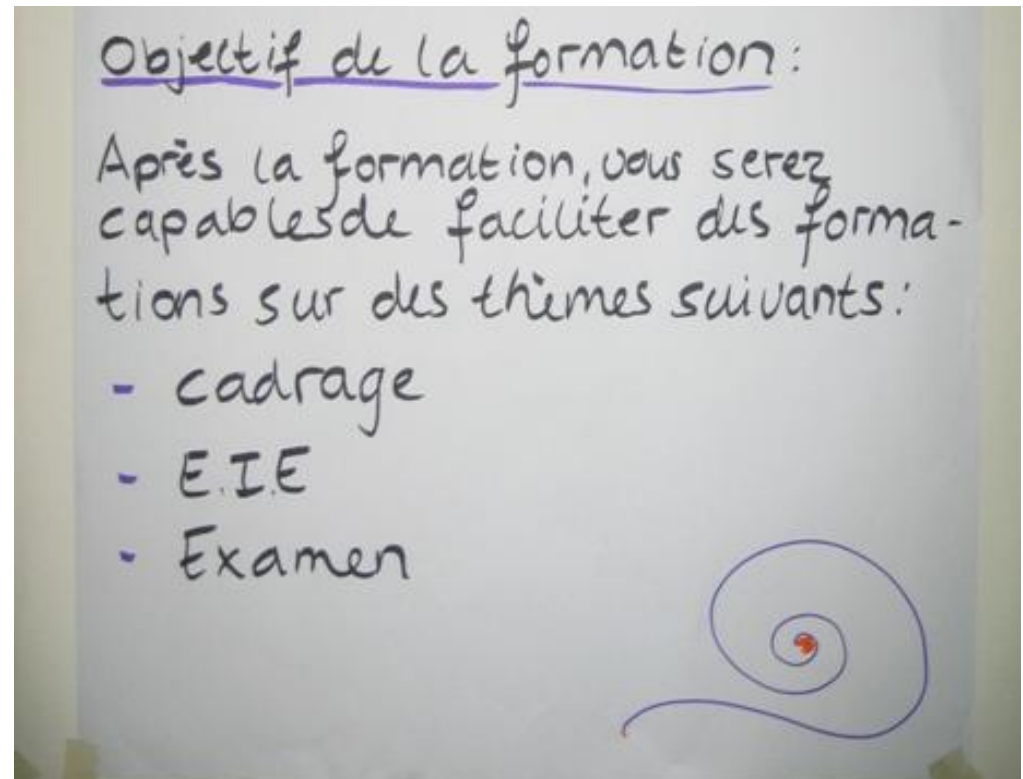 Objectif de la formation:
Après la formation, vous serez
capables de faciliter des forma-
tions sur des thèmes suivants:
- cadrage
- E.I.E
- Examen